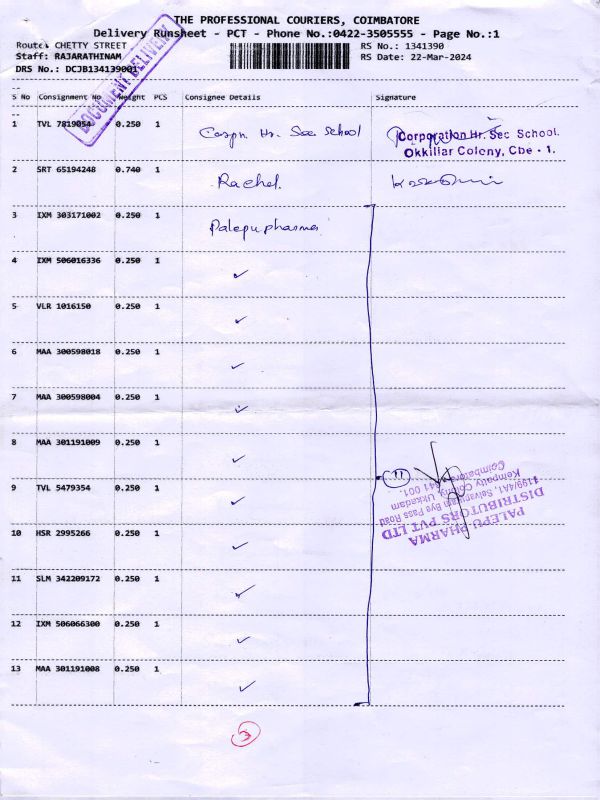 THE PROFESSIONAL COURIERS, COIMBATORE
Delivery Runsheet - PCT - Phone No.:0422-3505555 - Page No.:1
Route: CHETTY STREET
RS No.: 1341390
Staff: RAJARATHINAM
RS Date: 22-Mar-2024
DRS No.: DCJB134139001
DOCUMENT DELIVERY
S No Consignment No Weight PCS Consignee Details Signature
1 TVL 7819054 0.250 1 Corpn. Hr. Sec School
Corporation Hr. Sec School.
Okkiliar Colony, Cbe - 1.
2 SRT 65194248 0.740 1 Rachel
3 IXM 303171002 0.250 1 Palepu pharma
4 IXM 506016336 0.250 1 ✓
5 VLR 1016150 0.250 1 ✓
6 MAA 300598018 0.250 1 ✓
7 MAA 300598004 0.250 1 ✓
8 MAA 301191009 0.250 1 ✓
11
PALEPU PHARMA
DISTRIBUTORS PVT LTD
1199/4A1, Selvaraj Bye Pass Road
Kempatty Colony, Ukkadam
Coimbatore 641 001.
9 TVL 5479354 0.250 1 ✓
10 HSR 2995266 0.250 1 ✓
11 SLM 342209172 0.250 1 ✓
12 IXM 506066300 0.250 1 ✓
13 MAA 301191008 0.250 1 ✓
3